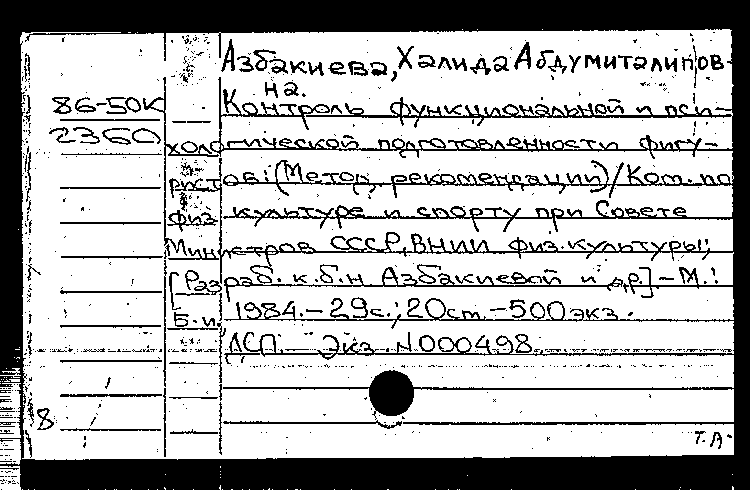 Азбакиева, Халида Абдумиталипов-
на.
86-50к Контроль функциональной и пси-
2360 хологической подготовленности фигу-
ристов: (Метод. рекомендации)/Ком. по
физ культуре и спорту при Совете
Министров СССР, ВНИИ физ. культуры;
[Разраб. к.б.н Азбакиевой и др.]. - М.:
Б.и. 1984. - 29с.; 20см. - 500 экз.
ДСП. Экз. N000498.
8
Т.А.